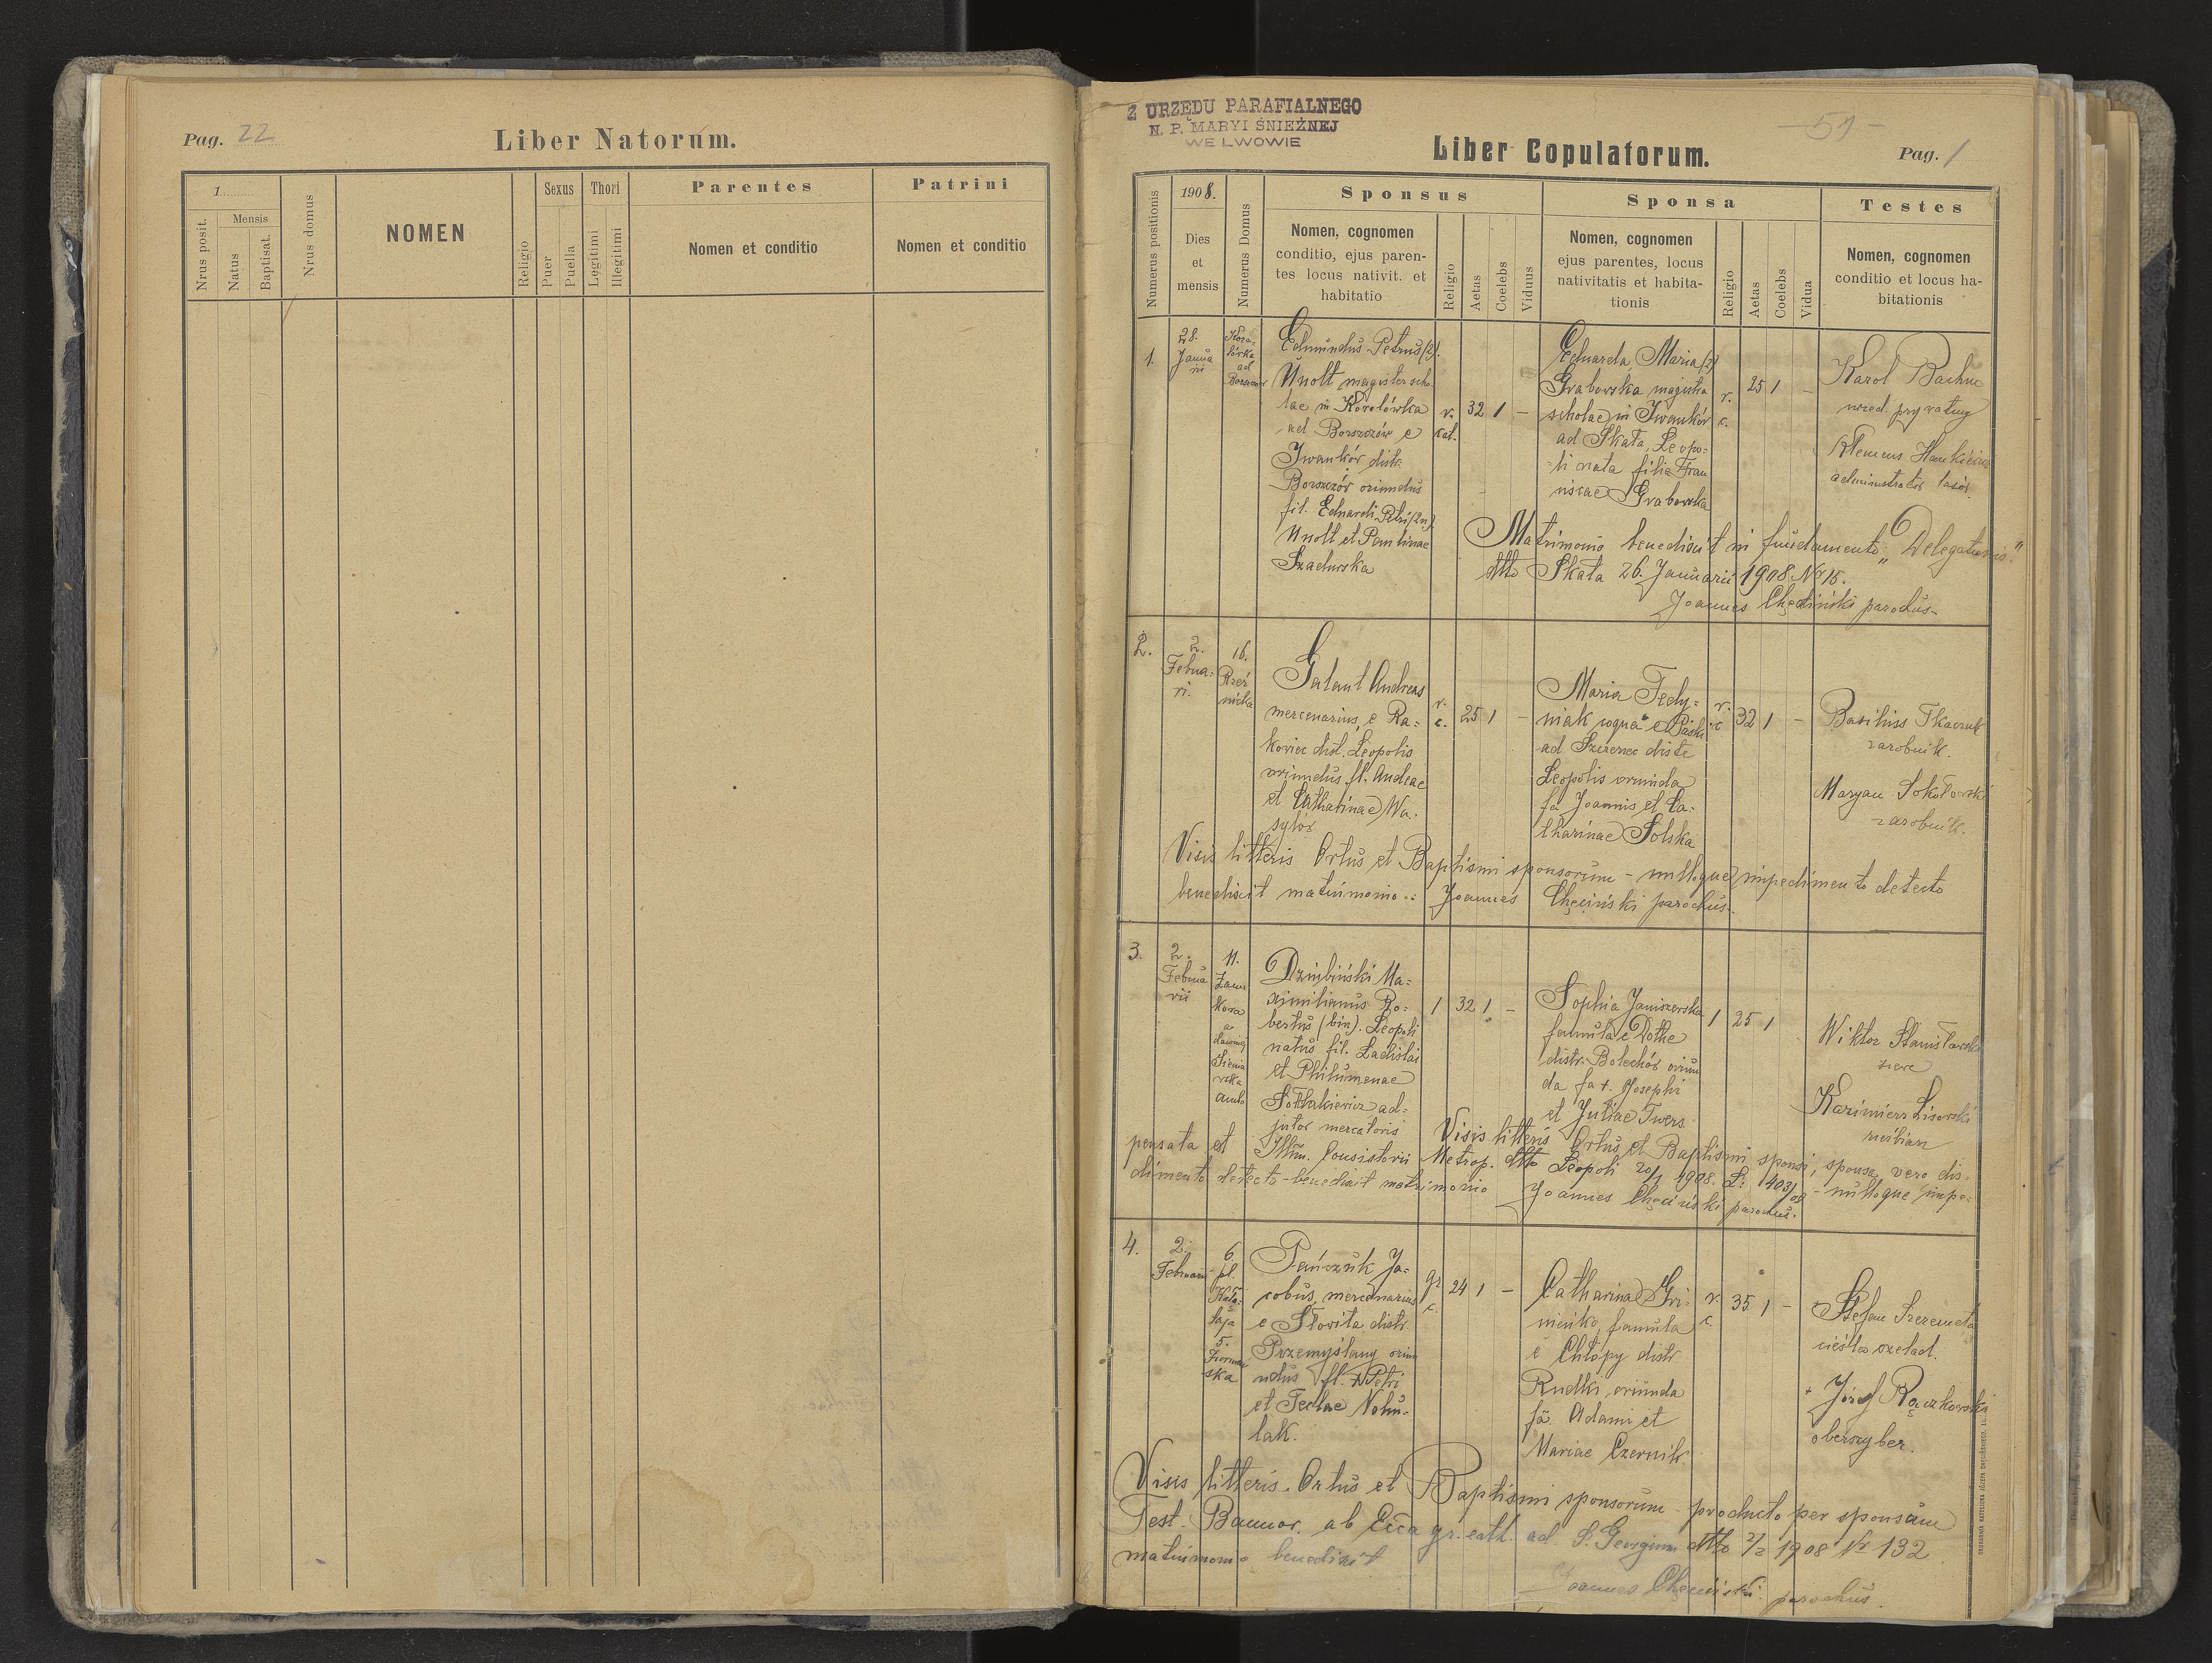 Pag. 22
Liber Natorum.
1
Nrus posit.
Mensis
Natus
Baptisat.
Nrus domus
NOMEN
Religio
Sexus
Puer
Puella
Thori
Legitimi
Illegitimi
Parentes
Nomen et conditio
Patrini
Nomen et conditio
Z URZĘDU PARAFIALNEGO
N. P. MARYI ŚNIEŻNEJ
WE LWOWIE
- 51 -
Liber Copulatorum.
Pag. 1
Numerus positionis
1908.
Dies
et
mensis
Numerus Domus
Sponsus
Nomen, cognomen
conditio, ejus paren-
tes locus nativit. et
habitatio
Religio
Aetas
Coelebs
Viduus
Sponsa
Nomen, cognomen
ejus parentes, locus
nativitatis et habita-
tionis
Religio
Aetas
Coelebs
Vidua
Testes
Nomen, cognomen
conditio et locus ha-
bitationis
1.
28.
Janua
rii
Koro-
lówka
ad
Borszczów
Edmundus Petrus (2)
Unolt magister scho-
lae in Korolówka
ad Borszczów e
Iwanków distr.
Borszczów oriundus
fil. Eduardi Petri (2n)
Unolt et Paulinae
Szadurska
r.
cat.
32 1 -
Eduarda Maria (2)
Grabowska magistra
scholae in Iwanków
ad Skała, Leopo-
li nata filia Fran
ciscae Grabowska
r.
c.
25 1 -
Karol Bachne
urzęd. prywatny
Klemens Hankiewicz
administrator lasów
Matrimonio benedixit in fundamento „Delegationis"
dtto Skała 26. Januarii 1908 No 15.
Joannes Chęciński parochus-
2.
2.
Februa-
ri.
16.
Rzeź
nicka
Galant Andreas
mercenarius, e Ra-
kowiec dist. Leopolis
oriundus fl. Andreae
et Catharinae Wa-
sylów
r.
c.
25 1 -
Maria Fedy-
niak coqua e Piaski
ad Szczerzec distr
Leopolis oriunda
fa Joannis et Ca-
tharinae Solska
r.
c
32 1 -
Basilius Tkaczuk
zarobnik.
Maryan Sokołowski
zarobnik.
Visis litteris Ortus et Baptismi sponsorum - nulloque impedimento detecto
benedixit matrimonio.: Joannes Chęciński parochus.
3.
2.
Februa
rii
11.
Zama
Sienia
wska
Dziubiński Ma-
ximilianus Ro-
bertus (bin). Leopoli
natus fil. Ladislai
et Philumenae
Sołtakiewicz ad-
jutor mercatoris
1 32 1 -
Sophia Janiszewska
famula e
distr. Bolechów oriun
da fa +. Josephi
et Juliae Twers
1 25 1
Wiktor Stanisławski
Kazimierz Lisowski
Visis litteris Ortus et Baptismi sponsi, sponsa vero dis-
pensata et Illm. Consistorii Metrop. dtto Leopoli 20/1 1908. L: 403/08 - nulloque impe-
dimento detecto - benedixit matrimonio Joannes Chęciński parochus.
4.
2.
Februarii
6.
pl.
5.
Pańczuk Ja-
cobus, mercenarius
e Słowita distr.
Przemyślany oriu
ndus fl. + Petri
et Teclae Nohu-
lak.
gr
c.
24 1 -
Catharina Gri-
nieńko, famula
e Chłopy distr.
Rudki oriunda
fa. Adami et
Mariae Czernik
r.
c.
35 1 -
Stefan Szeremeta
cieśla czelad.
+ Józef Rączkowski
oberszyber.
Visis litteris Ortus et Baptismi sponsorum - producto per sponsum
Test. Bannor. ab Ecca gr. cath. ad S. Georgium dtto 2/2 1908 Nr 132
matrimonio benedixit
Joannes Chęciński parochus.